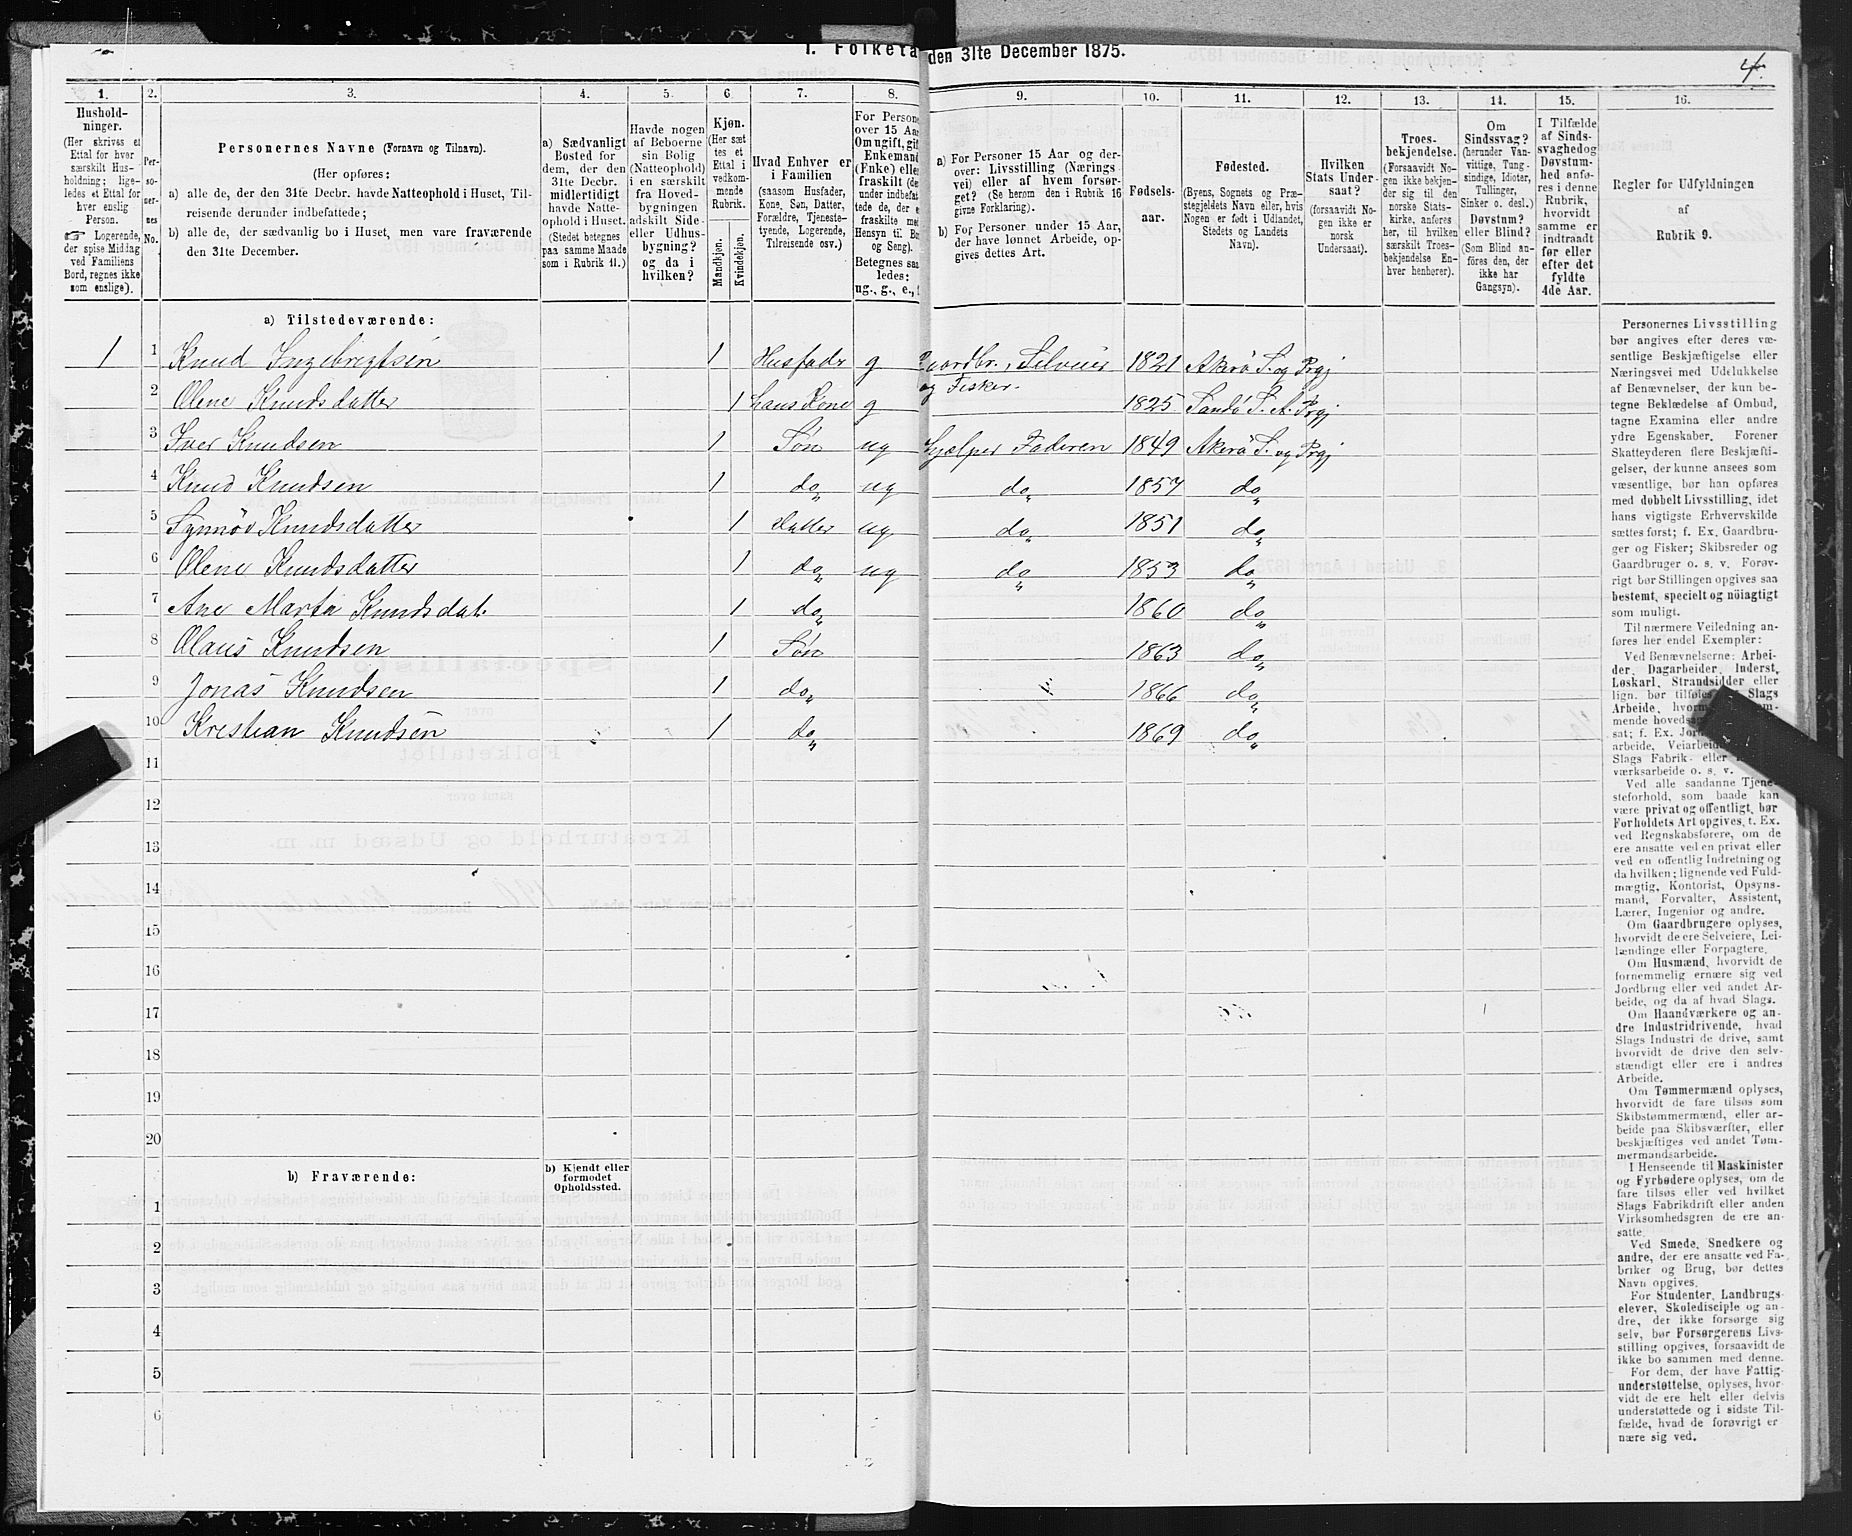 1. Folketa den 31te December 1875.
4.
1. 2. 3. 4. 5. 6 7. 8. 9. 10. 11. 12. 13. 14. 15. 16.
Hushold-
ninger.
(Her skrives et
Ettal for hver
særskilt Hus-
holdning; lige-
ledes et Ettal for
hver enslig
Person.
☞ Logerende,
der spise Middag
ved Familiens
Bord, regnes ikke
som enslige).
Per-
so-
ner-
nes
No.
Personernes Navne (Fornavn og Tilnavn).
(Her opføres:
a) alle de, der den 31te Decbr. havde Natteophold i Huset, Til-
reisende derunder indbefattede;
b) alle de, der sædvanlig bo i Huset, men vare fraværende
den 31te December.
a) Sædvanligt
Bosted for
dem, der den
31te Decbr.
midlertidigt
havde Natte-
ophold i Huset.
(Stedet betegnes
paa samme Maade
som i Rubrik 11.)
Havde nogen
af Beboerne
sin Bolig
(Natteophold)
i en særskilt
fra Hoved-
bygningen
adskilt Side-
eller Udhus-
bygning?
og da i
hvilken?
Kjøn.
(Her sæt-
tes et
Ettal i
vedkom-
mende
Rubrik.
Mandkjøn.
Kvindekjøn.
Hvad Enhver er
i Familien
(saasom Husfader,
Kone, Søn, Datter,
Forældre, Tjeneste-
tyende, Logerende,
Tilreisende osv.)
For Persone
over 15 Aar
Om ugift, gif
Enkemand
(Enke) elle
fraskilt (de
under indbefat
tede de, der e
fraskilte me
Hensyn til. Bo
og Seng).
Betegnes saa
ledes:
ug., g., e.,
a) For Personer 15 Aar og der-
over: Livsstilling (Nærings
vei) eller af hvem forsør-
get? (Se herom den i Rubrik 16
givne Forklaring).
b) For Personer under 15 Aar,
der have lønnet Arbeide, op-
gives dettes Art.
Fødsels-
aar.
Fødested.
(Byens, Sognets og Præ-
stegjeldets Navn eller, hvis
Nogen er født i Udlandet,
Stedets og Landets
Navn).
Hvilken
Stats Under-
saat?
(forsaavidt No-
gen ikke er
norsk
Undersaat).
Troes-
bekjendelse.
(Forsaavidt No-
gen ikke bekjen-
der sig til den
norske Stats-
kirke, anføres
her, til hvilken
særskilt Troes-
bekjendelse En-
hver henhører).
Om
Sindssvag?
(herunder Van-
vittige, Tung-
sindige, Idioter,
Tullinger,
Sinker o. desl.)
Døvstum?
eller Blind?
(Som Blind an-
føres den, der
ikke har
Gangsyn).
I Tilfælde
af Sinds-
svaghed og
Døvstum-
hed anfø-
res i denne
Rubrik,
hvorvidt
samme er
indtraadt
før eller
efter det
fyldte
4de Aar.
Regler for Udfyldningen
af
Rubrik 9.
a) Tilstedeværende:
1 1 Knud Ingebregtsen 1 Husfader g Gaardbr., Selveier og Fisker. 1821 Akerö S. og Prgj
2 Olene Knudsdatter 1 hans Kone g 1825 Sandö S. A. Prgj
3 Iver Knudsen 1 Søn ug Hjælper Faderen 1849 Akerö S. og Prgj
4 Knud Knudsen 1 do„ ug do„ 1857 do„
5 Synnöv Knudsdatter 1 datter ug do„ 1851 do„
6 Olene Knudsdatter 1 do„ ug do„ 1853 do„
7 Ane Marta Knudsdat. 1 do„ 1860 do„
8 Olaus Knudsen 1 Søn 1863 do„
9 Jonas Knudsen 1 do„ 1866 do„
10 Kristian Knudsen 1 do„ 1869 do„
11
12
13
14
15
16
17
18
19
20
b) Fraværende:
b) Kjendt eller
formodet
Opholdssted.
1
2
3
4
5
6
Personernes Livsstilling
bør angives efter deres væ-
sentlige Beskjæftigelse eller
Næringsvei med Udelukkelse
af Benævnelser, der kun be-
tegne Beklædelse af Ombud,
tagne Examina eller andre
ydre Egenskaber. Forener
Skatteyderen flere Beskjæfti-
gelser, der kunne ansees som
væsentlige, bør han opføres
med dobbelt Livsstilling, idet
hans vigtigste Erhvervskilde
sættes først; f. Ex. Gaardbru-
ger og Fisker; Skibsreder og
Gaardbruger o. s. v. Forøv-
rigt bør Stillingen opgives saa
bestemt, specielt og nöiagtigt
som muligt.
Til nærmere Veiledning an-
føres her endel Exempler:
Ved Benævnelserne: Arbei-
der, Dagarbeider, Inderst,
Løskarl, Strandsidder eller
lign. bør tilføies Slags
Arbeide, hvorm om-
mende hovedsag
sat; f. Ex. Jord
arbeide, Veiarbeid
Slags Fabrik- eller
værksarbeide o. s. v.
Ved alle saadanne Tjene-
steforhold, som baade kan
være privat og offentligt, bør
Forholdets Art opgives, t. Ex.
ved Regnskabsførere, om de
ere ansatte ved en privat eller
ved en offentlig Indretning og
da hvilken; lignende ved Fuld-
mægtig, Kontorist, Opsyns-
mand, Forvalter, Assistent,
Lærer, Ingeniør og andre.
Om Gaardbrugere oplyses,
hvorvidt de ere Selveiere, Lei-
lændinge eller Forpagtere.
Om Husmænd, hvorvidt de
fornemmelig ernære sig ved
Jordbrug eller ved andet Ar-
beide, og da af hvad Slags.
Om Haandværkere og an-
dre Industridrivende, hvad
Slags Industri de drive, samt
hvorvidt de drive den selv-
stændigt eller ere i andres
Arbeide.
Om Tømmermænd oplyses,
hvorvidt de fare tilsøs som
Skibstømmermænd, eller ar-
beide paa Skibsværfter, eller
beskjæftiges ved andet Tøm-
mermandsarbeide.
I Henseende til Maskinister
og Fyrbødere oplyses, om de
fare tilsøs eller ved hvilket
Slags Fabrikdrift eller anden
Virksomhedsgren de ere an-
satte.
Ved Smede, Snedkere og
andre, der ere ansatte ved Fa-
briker og Brug, bør dettes
Navn opgives.
For Studenter, Landbrugs-
elever, Skoledisciple og an-
dre, der ikke forsørge sig
selv, bør Forsørgerens Livs-
stilling opgives, forsaavidt de
ikke bo sammen med denne.
For dem, der have Fattig-
understøttelse, oplyses, hvor-
vidt de ere helt eller delvis
understøttede og i sidste Til-
fælde, hvad de forøvrigt er
nære sig ved.